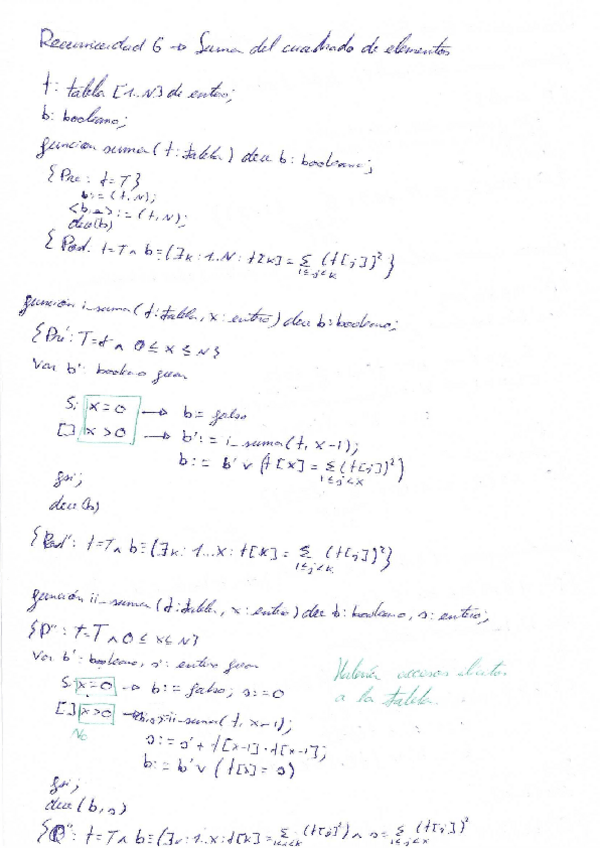 Recursividad 6 → Suma del cuadrado de elementos
t: tabla [1..N] de entero;
b: booleano;
función suma (t: tabla) dev b: booleano;
{Pre: t=T}
b:= (t, N);
<b, _> := (t, N);
dev(b)
{Post. t=T ∧ b=(∃k: 1..N: t[k] = Σ 1≤j<k (t[j])² }
función i_suma (t: tabla, x: entero) dev b: booleano;
{Pre': T=t ∧ 0≤x≤N}
Var b': booleano
Si x=0 → b= falso
[] x>0 → b':= i_suma(t, x-1);
b:= b' ∨ (t[x] = Σ 1≤j<x (t[j])²)
fsi;
dev(b)
{Post': t=T ∧ b=(∃k: 1...x: t[k] = Σ 1≤j<k (t[j])²)}
función ii_suma (t: tabla, x: entero) dev b: booleano, s: entero;
{P'': t=T ∧ 0≤x≤N}
Var b': booleano, s': entero
Si x=0 → b:= falso; s:=0
Habría accesos
a la tabla.
[] x>0 → ii_suma(t, x-1);
No
s:= s' + t[x-1]·t[x-1];
b:= b' ∨ (t[x] = s)
fsi;
dev (b, s)
{Q'': t=T ∧ b=(∃k: 1..x: t[k] = Σ (t[j])²) ∧ s= Σ (t[j])²